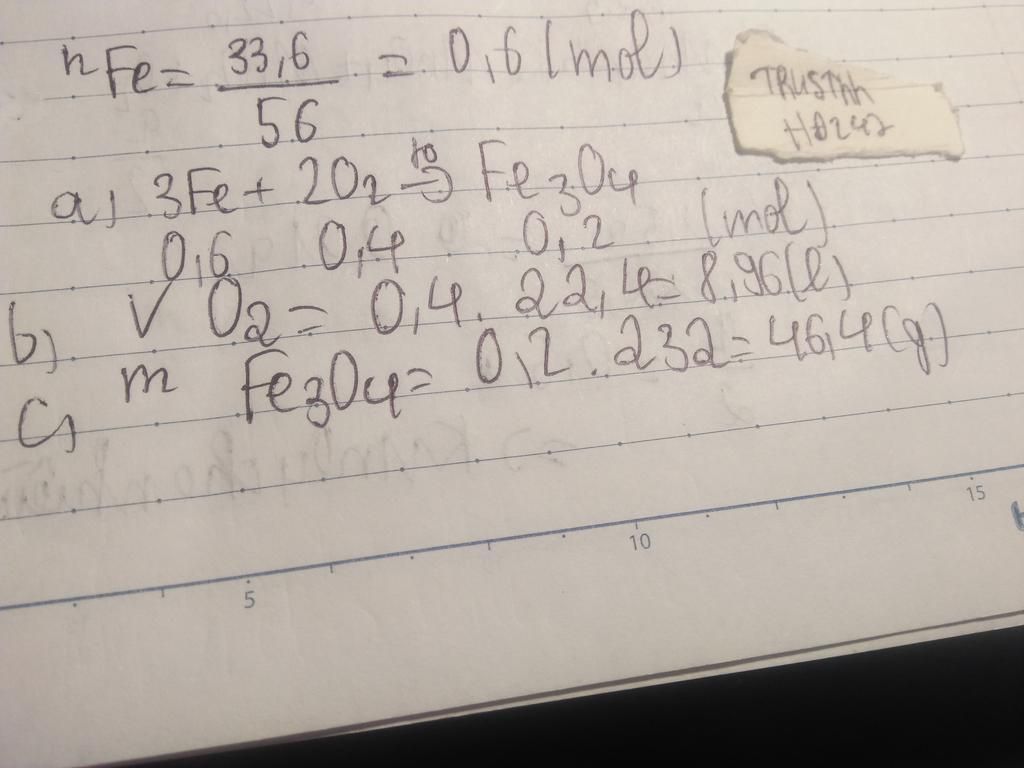 nFe = 33,6 / 56 = 0,6 (mol)
TRUSTAH
HD247
a, 3Fe + 2O2 t0→ Fe3O4
0,6 0,4 0,2 (mol)
b) V O2 = 0,4. 22,4 = 8,96(l)
c, m Fe3O4 = 0,2. 232 = 46,4 (g)
5 10 15